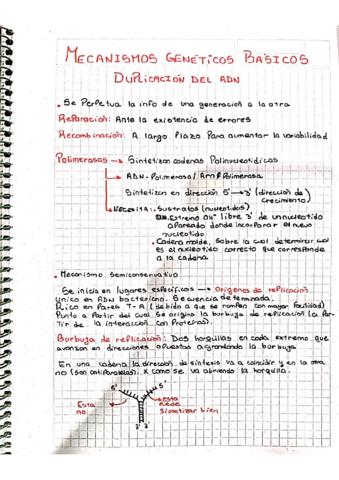 MECANISMOS GENÉTICOS BÁSICOS
DUPLICACIÓN DEL ADN
. Se Perpetua la info de una generacion a la otra
Reparación: Ante la existencia de errores
Recombinación: A largo Plazo Para aumentar la variabilidad
Polimerasas → Sintetizan cadenas Polinucleotidicas
→ ADN-Polimerasa / ARN Polimerasa
Sintetizan en dirección 5' → 3' (dirección de crecimiento)
→ NECESITA: Sustratos (nucleotidos)
Extremo OH⁻ libre 3' de un nucleotido
apareado donde incorporar el nuevo
nucleotido
• Cadena molde, sobre la cual determinar cual
es el nucleotido correcto que corresponde
a la cadena
. Mecanismo Semiconservativo
Se inicia en lugares especificos → Origenes de replicación
Unico en ADN bacteriano. Secuencia determinada.
Rico en Pares T-A (debido a que se rompen con mayor facilidad)
Punto a Partir del cual se origina la burbuja de replicación (a Par-
tir de la interacción con Proteinas).
Burbuja de replicación: Dos horquillas en cada extremo que
avanzan en direcciones opuestas agrandando la burbuja
En una cadena la dirección de sintesis va a coincidir y en la otra
no (Son antiparalelas). X como se va abriendo la horquilla.
5'
5'
Esta
no
esta
Puede
Sintetizar bien
3' 3'